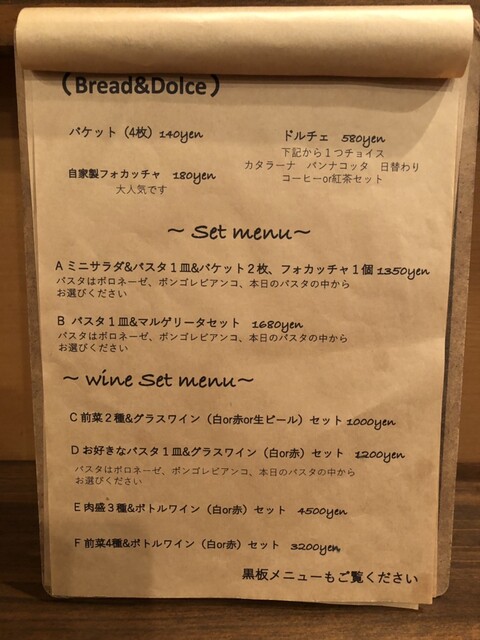 (Bread&Dolce)
バケット（4枚）140yen
ドルチェ 580yen
下記から１つチョイス
カタラーナ パンナコッタ 日替わり
コーヒーor紅茶セット
自家製フォカッチャ 180yen
大人気です
～ Set menu～
A ミニサラダ&パスタ１皿&バケット２枚、フォカッチャ１個 1350yen
パスタはボロネーゼ、ボンゴレビアンコ、本日のパスタの中から
お選びください
B パスタ１皿&マルゲリータセット 1680yen
パスタはボロネーゼ、ボンゴレビアンコ、本日のパスタの中から
お選びください
～ wine Set menu～
C 前菜２種&グラスワイン（白or赤or生ビール）セット 1000yen
D お好きなパスタ１皿&グラスワイン（白or赤）セット 1200yen
パスタはボロネーゼ、ボンゴレビアンコ、本日のパスタの中から
お選びください
E 肉盛３種&ボトルワイン（白or赤）セット 4500yen
F 前菜4種&ボトルワイン（白or赤）セット 3200yen
黒板メニューもご覧ください